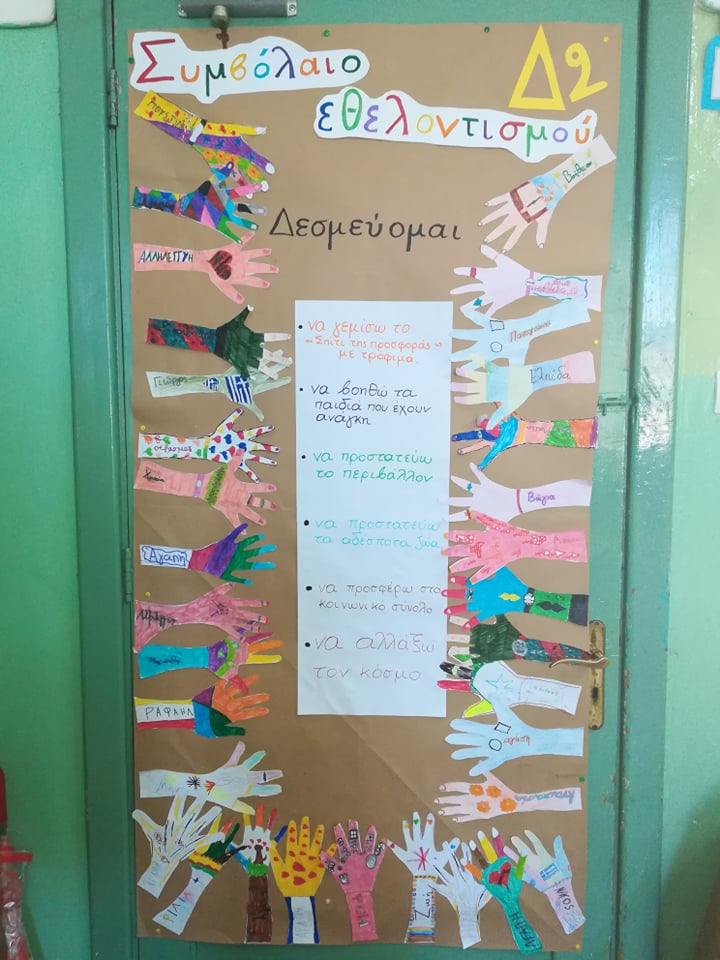 Συμβόλαιο
εθελοντισμού
Δ2
Δεσμεύομαι
• να γεμίσω το
«Σπίτι της προσφοράς»
με τρόφιμα.
• να βοηθώ τα
παιδιά που έχουν
ανάγκη
• να προστατεύω
το περιβάλλον
• να προστατεύω
τα αδέσποτα ζώα
• να προσφέρω στο
κοινωνικό σύνολο
• να αλλάξω
τον κόσμο
ΑΛΛΗΛΕΓΓΥΗ
Γιώργος
Αγάπη
ΡΑΦΑΗΛ
Βοήθεια
Παναγιώτα
Ελπίδα
Βάγια
Αγάπη
Αναστασία
Ζωή
ΝΙΚΟΣ